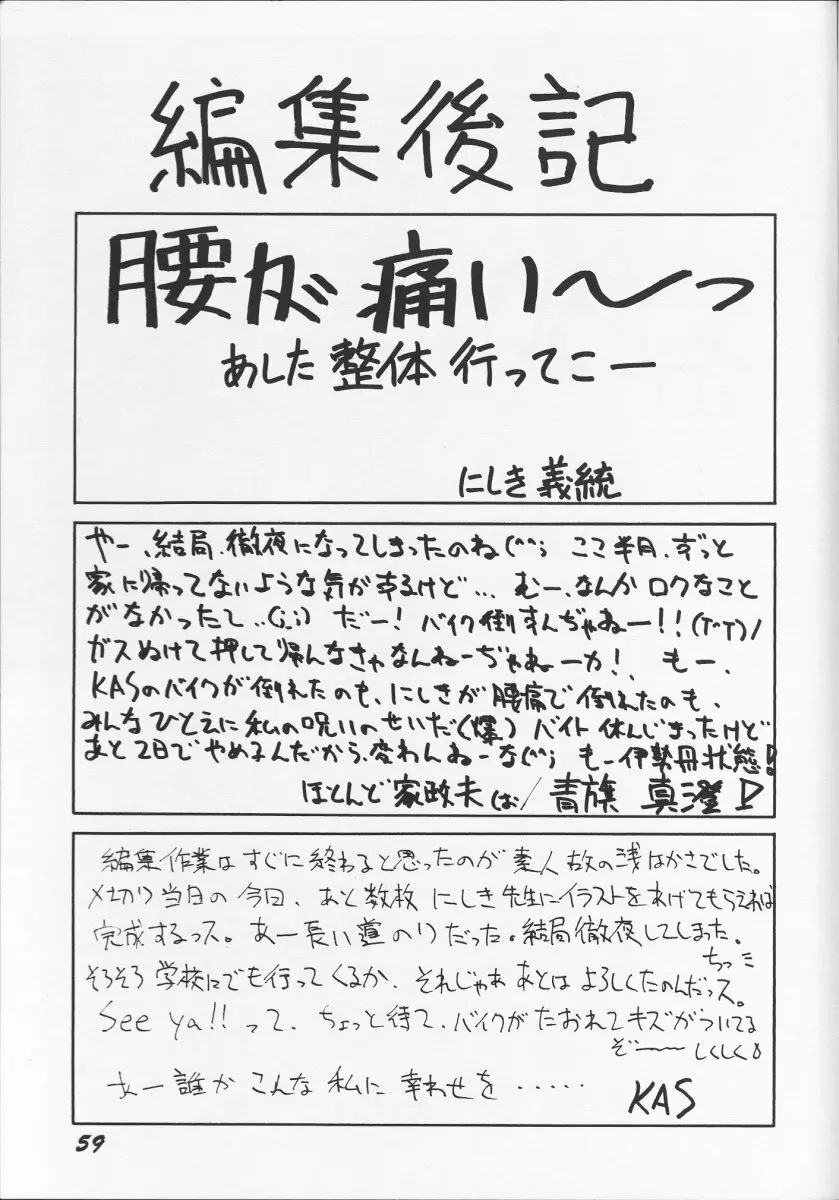 編集後記
腰が痛い〜っ
あした整体行ってこー
にしき義統
やー、結局、徹夜になってしまったのね(^^; ここ半月、ずっと
家に帰ってないような気がするけど… むー、なんかロクなこと
がなかったて..(;_;) だー! バイク倒すんぢゃねー!!(T^T)/
ガスぬけて押して帰んなきゃなんねーぢゃねーカ! もー、
KASのバイクが倒れたのも、にしきが腰痛で倒れたのも、
みんなひとえに私の呪いのせいだ(爆) バイト休んじまったけど
あと2日でやめるんだから、変わんねーな(^^; もー伊勢丹状態!
ほとんど家政夫 青旗 真澄
編集作業はすぐに終わると思ったのが素人故の浅はかさでした。
〆切り当日の今日、あと数枚にしき先生にイラストをあげてもらえれば
完成するっス。あー長い道のりだった。結局徹夜してしまった。
ちっ
そろそろ学校にでも行ってくるか、それじゃあ あとは よろしくたのんだっス。
See ya!! って、ちょっと待て、バイクがたおれてキズがついてる
ぞ〜 しくしく
あー誰か こんな 私に 幸わせを ・・・・・
KAS
59